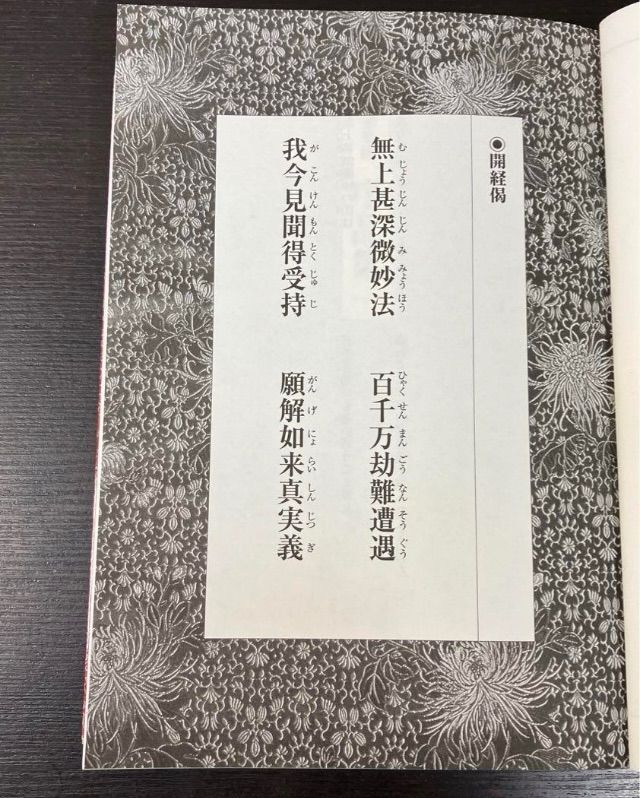 ◉開経偈
無上甚深微妙法
むじょうじんじんみみょうほう
百千万劫難遭遇
ひゃくせんまんごうなんそうぐう
我今見聞得受持
がこんけんもんとくじゅじ
願解如来真実義
がんげにょらいしんじつぎ